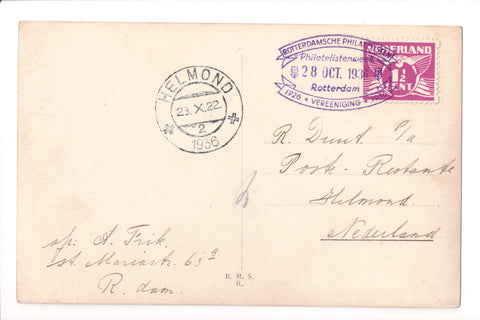 HELMOND
23.X.22.
2
1936
ROTTERDAMSCHE
Philatelistenweek
28 OCT. 1936
Rotterdam
1926 * VEREENIGING *
NEDERLAND
1½
CENT
R. Dunt. P/a
Poste-Restante
Helmond.
Nederland.
afz: A. Frik.
St. Mariastr. 63a
R. dam.
B. M. S.
R.